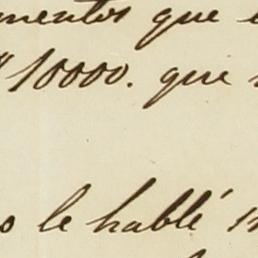 mentos que
10000. que
le hablé